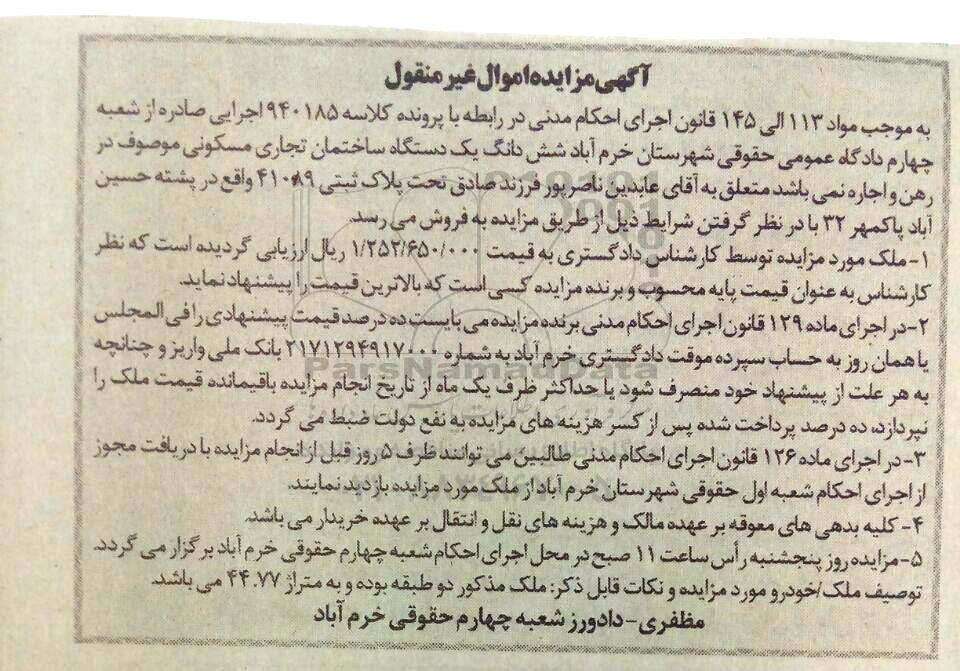 آگهی مزایده اموال غیر منقول
به موجب مواد ۱۱۳ الی ۱۴۵ قانون اجرای احکام مدنی در رابطه با پرونده کلاسه ۹۴۰۱۸۵ اجرایی صادره از شعبه
چهارم دادگاه عمومی حقوقی شهرستان خرم آباد شش دانگ یک دستگاه ساختمان تجاری مسکونی موصوف در
رهن و اجاره نمی باشد متعلق به آقای عابدین ناصرپور فرزند صادق تحت پلاک ثبتی ۴۱۰۸۹ واقع در پشته حسین
آباد پاکمهر ۳۲ با در نظر گرفتن شرایط ذیل از طریق مزایده به فروش می رسد.
۱- ملک مورد مزایده توسط کارشناس دادگستری به قیمت ۱/۲۵۲/۶۵۰/۰۰۰ ریال ارزیابی گردیده است که نظر
کارشناس به عنوان قیمت پایه محسوب و برنده مزایده کسی است که بالاترین قیمت را پیشنهاد نماید.
۲-در اجرای ماده ۱۲۹ قانون اجرای احکام مدنی برنده مزایده می بایست ده درصد قیمت پیشنهادی را فی المجلس
یا همان روز به حساب سپرده موقت دادگستری خرم آباد به شماره ۲۱۷۱۲۹۴۹۱۷۰۰۰ بانک ملی واریز و چنانچه
به هر علت از پیشنهاد خود منصرف شود یا حداکثر ظرف یک ماه از تاریخ انجام مزایده باقیمانده قیمت ملک را
نپردازد، ده درصد پرداخت شده پس از کسر هزینه های مزایده به نفع دولت ضبط می گردد.
۳-در اجرای ماده ۱۲۶ قانون اجرای احکام مدنی طالبین می توانند ظرف ۵ روز قبل از انجام مزایده با دریافت مجوز
از اجرای احکام شعبه اول حقوقی شهرستان خرم آباد از ملک مورد مزایده بازدید نمایند.
۴- کلیه بدهی های معوقه بر عهده مالک و هزینه های نقل و انتقال بر عهده خریدار می باشد.
۵-مزایده روز پنجشنبه رأس ساعت ۱۱ صبح در محل اجرای احکام شعبه چهارم حقوقی خرم آباد برگزار می گردد.
توصیف ملک/خودرو مورد مزایده و نکات قابل ذکر: ملک مذکور دو طبقه بوده و به متراژ ۴۴.۷۷ می باشد.
مظفری-دادورز شعبه چهارم حقوقی خرم آباد
ParsNamadData